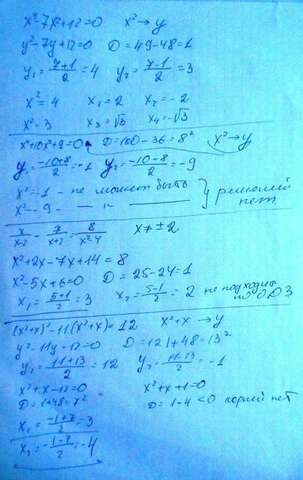 x⁴-7x²+12=0 x²→y
y²-7y+12=0 D=49-48=1
y₁=(7+1)/2=4 y₂=(7-1)/2=3
x²=4 x₁=2 x₂=-2
x²=3 x₃=√3 x₄=-√3
x⁴+10x²+9=0 D=100-36=8² x²→y
y₁=(-10+8)/2=-1 y₂=(-10-8)/2=-9
x²=-1 - не может быть } решений
x²=-9 - — " — нет
x/(x-2) - 7/(x+2) = 8/(x²-4) x≠±2
x²+2x-7x+14=8
x²-5x+6=0 D=25-24=1
x₁=(5+1)/2=3 x₂=(5-1)/2=2 не подходит
по ОДЗ
(x²+x)²-11(x²+x)=12 x²+x→y
y²-11y-12=0 D=121+48=13²
y₁=(11+13)/2=12 y₂=(11-13)/2=-1
x²+x-12=0 x²+x+1=0
D=1+48=7² D=1-4<0 корней нет
x₁=(-1+7)/2=3
x₂=(-1-7)/2=-4